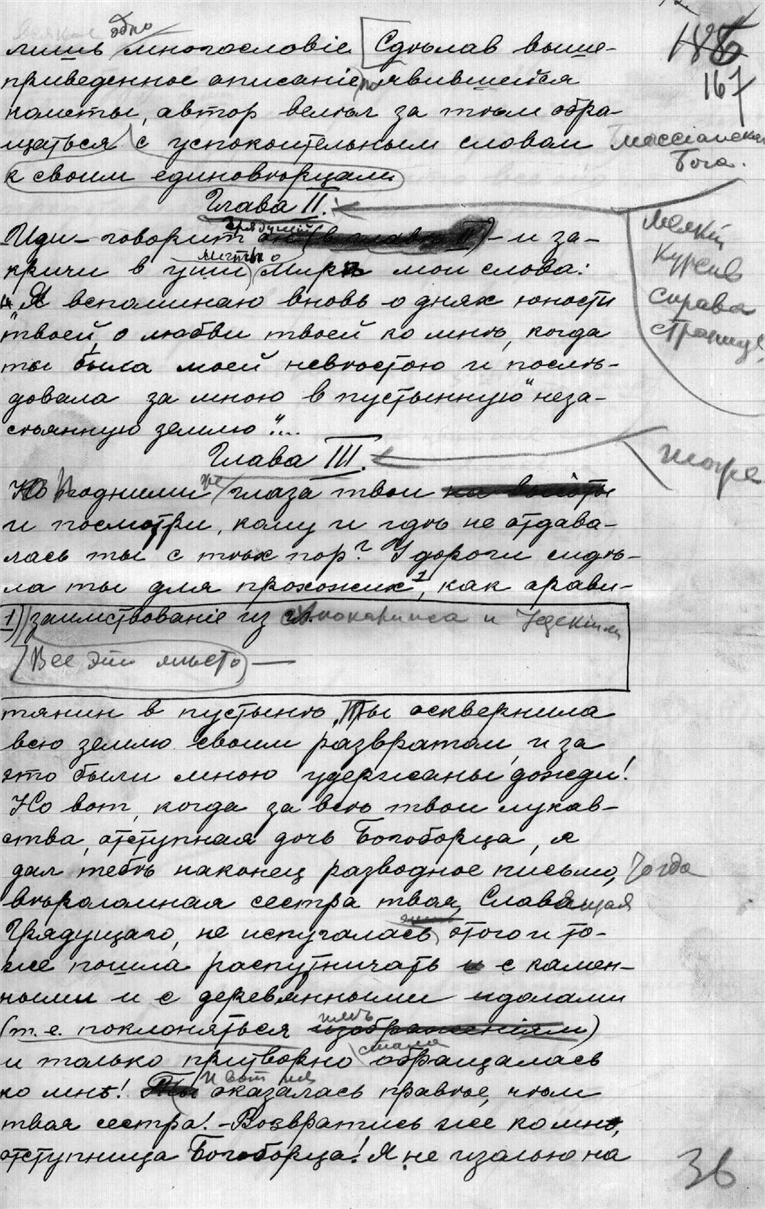 лишь многословіе Сдѣлав выше-
приведенное описаніе появившейся
кометы, автор велѣл за тѣм обра-
щаться с успокоительным словом
к своим единовѣрцам
Мессіанская
Бога.
186
167
Глава II.
Иди – говорит грядущий – и за-
кричи в уши мои слова:
„Я вспоминаю вновь о днях юности
твоей, о любви твоей ко мнѣ, когда
ты была моей невѣстою и послѣ-
довала за мною в пустынную неза-
сѣянную землю“...
Мелкій
курсив
справа
страницы
Глава III.
тоже
Но подними же глаза твои на высоты
и посмотри, кому и гдѣ не отдава-
лась ты с тѣх пор? У дороги сидѣ-
ла ты для прохожих 1, как арави-
1) заимствование из Апокалипсиса и Иезекіиля
Все это мѣсто —
тянин в пустынѣ, Ты осквернила
всю землю своим развратом, и за
это были мною удержаны дожди!
Но вот, когда за всѣ твои лукав-
ства, отступная дочь Богоборца, я
дал тебѣ наконец разводное письмо, Тогда
вѣроломная сестра твоя, Славящая
Грядущаго, не испугалась этого и то-
же пошла распутничать и с камен-
ными и с деревянными идолами
(т. е. поклоняться изображеніям)
и только притворно стала обращалась
ко мнѣ! Ты И вот оказалась правѣе, чѣм
твоя сестра! – Возвратись же ко мнѣ,
отступница Богоборца! Я не изолью на
36